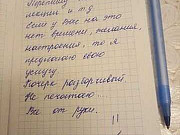 Перепишу
лекции и т.д
Если у Вас на это
нет времени, желания,
настроения, то я
предлагаю свою
услугу
Почерк разборчивый
Не печатаю...
Все от руки.
!!